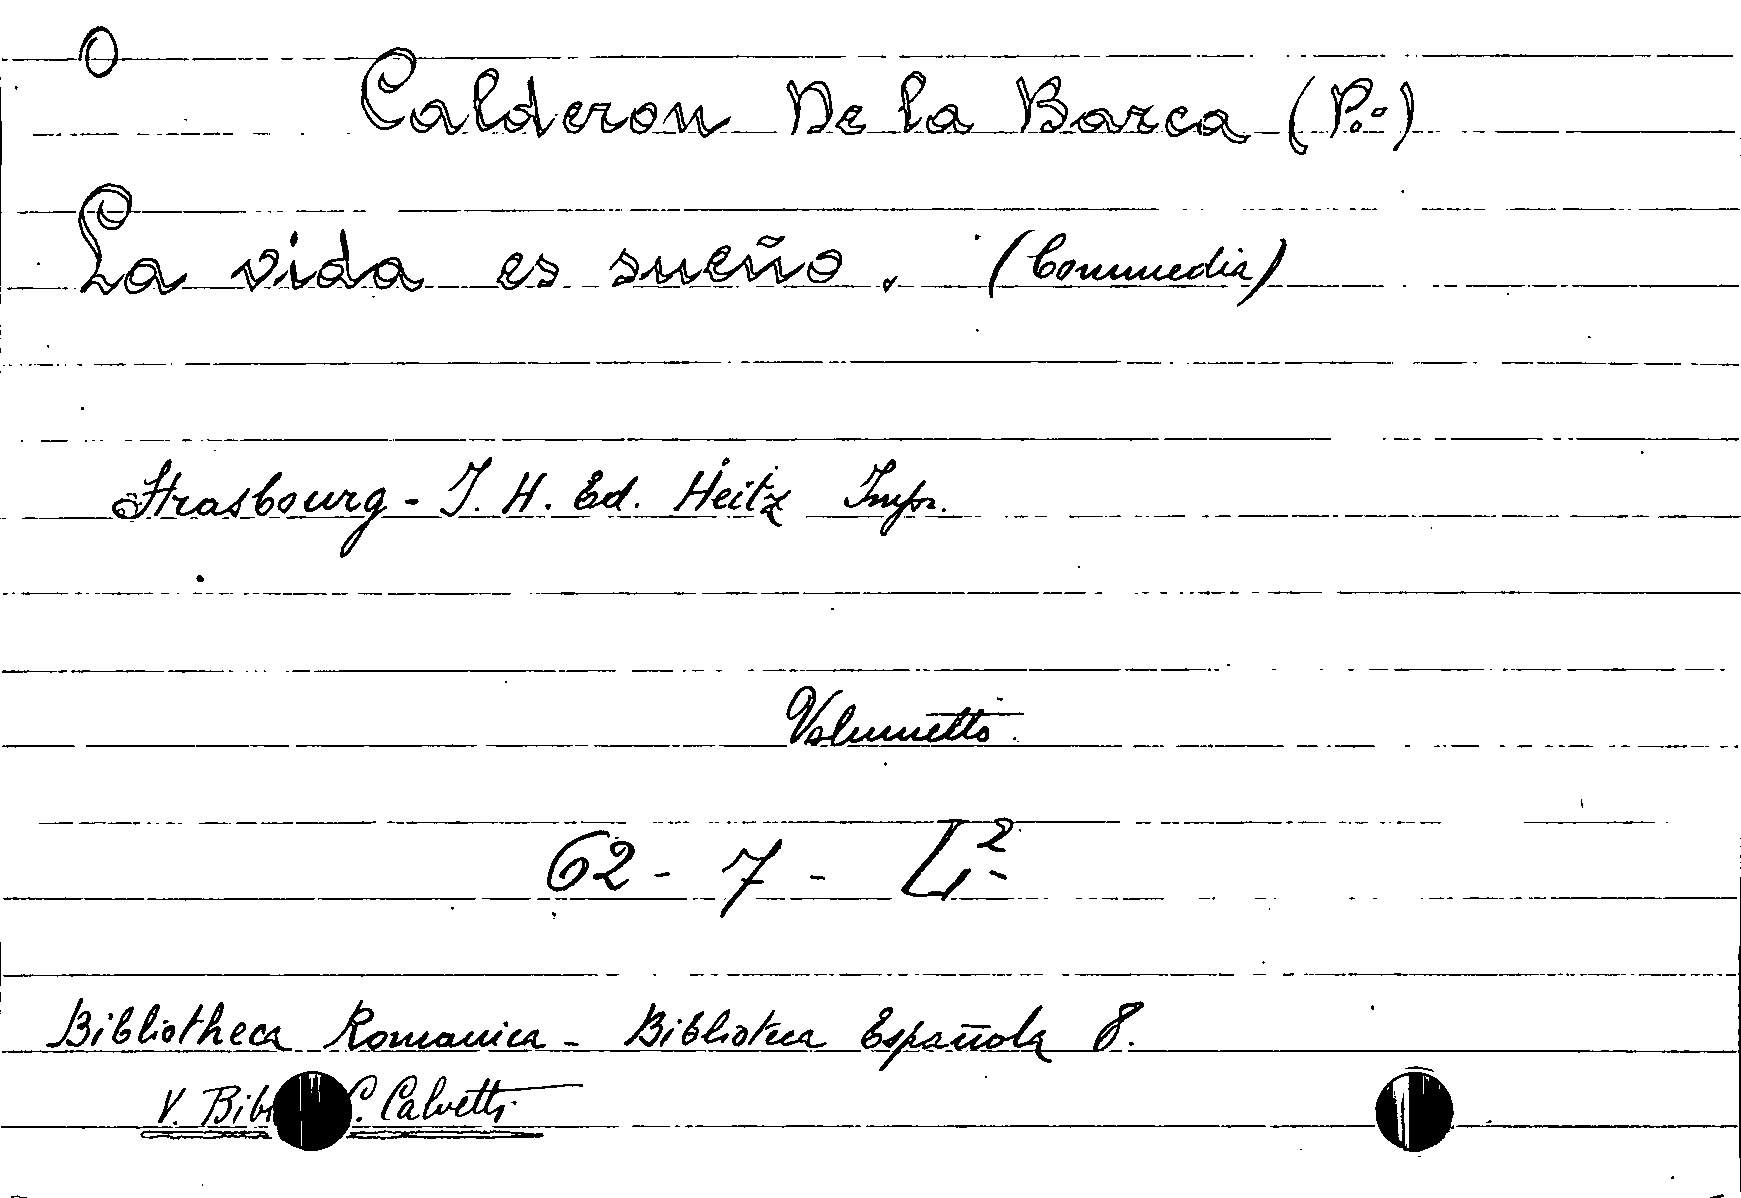 O
Calderon De la Barca (P.-)
La vida es sueño. (Commedia)
Strasbourg - J. H. Ed. Heitz Impr.
Volumetto.
62 - 7 - L.2-
Bibliotheca Romanica - Biblioteca Española 8.
V. Bibl C. Calvetti